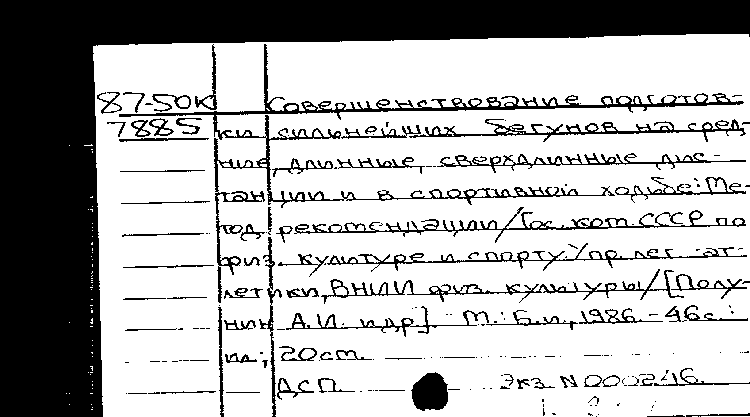 87-50К Совершенствование подготов-
7885 ки сильнейших бегунов на сред-
ние, длинные, сверхдлинные дис-
танции и в спортивной ходьбе: Ме-
тод. рекомендации/Гос. ком. СССР по
физ. культуре и спорту. Упр. лег. ат-
летики, ВНИИ физ. культуры/[Полу-
нин А.И. и др]. - М.: Б.и, 1986. - 46с.:
ил; 20см.
ДСП. Экз. N 000246.